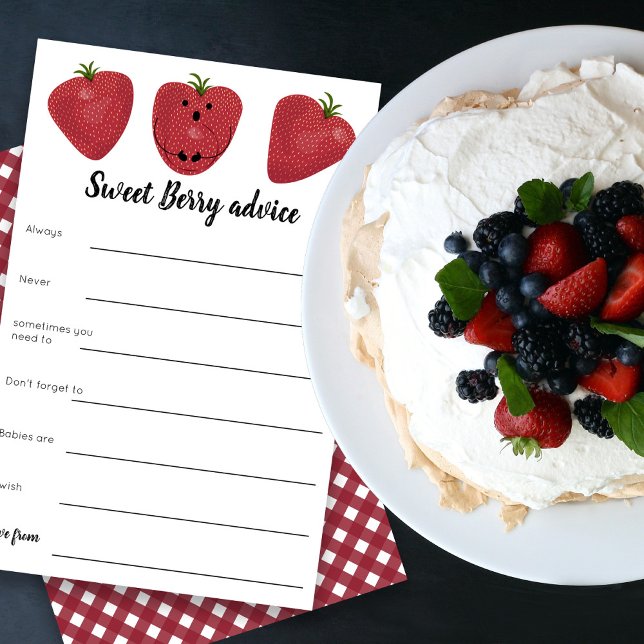 Sweet Berry advice
Always
Never
sometimes you
need to
Don't forget to
Babies are
wish
from